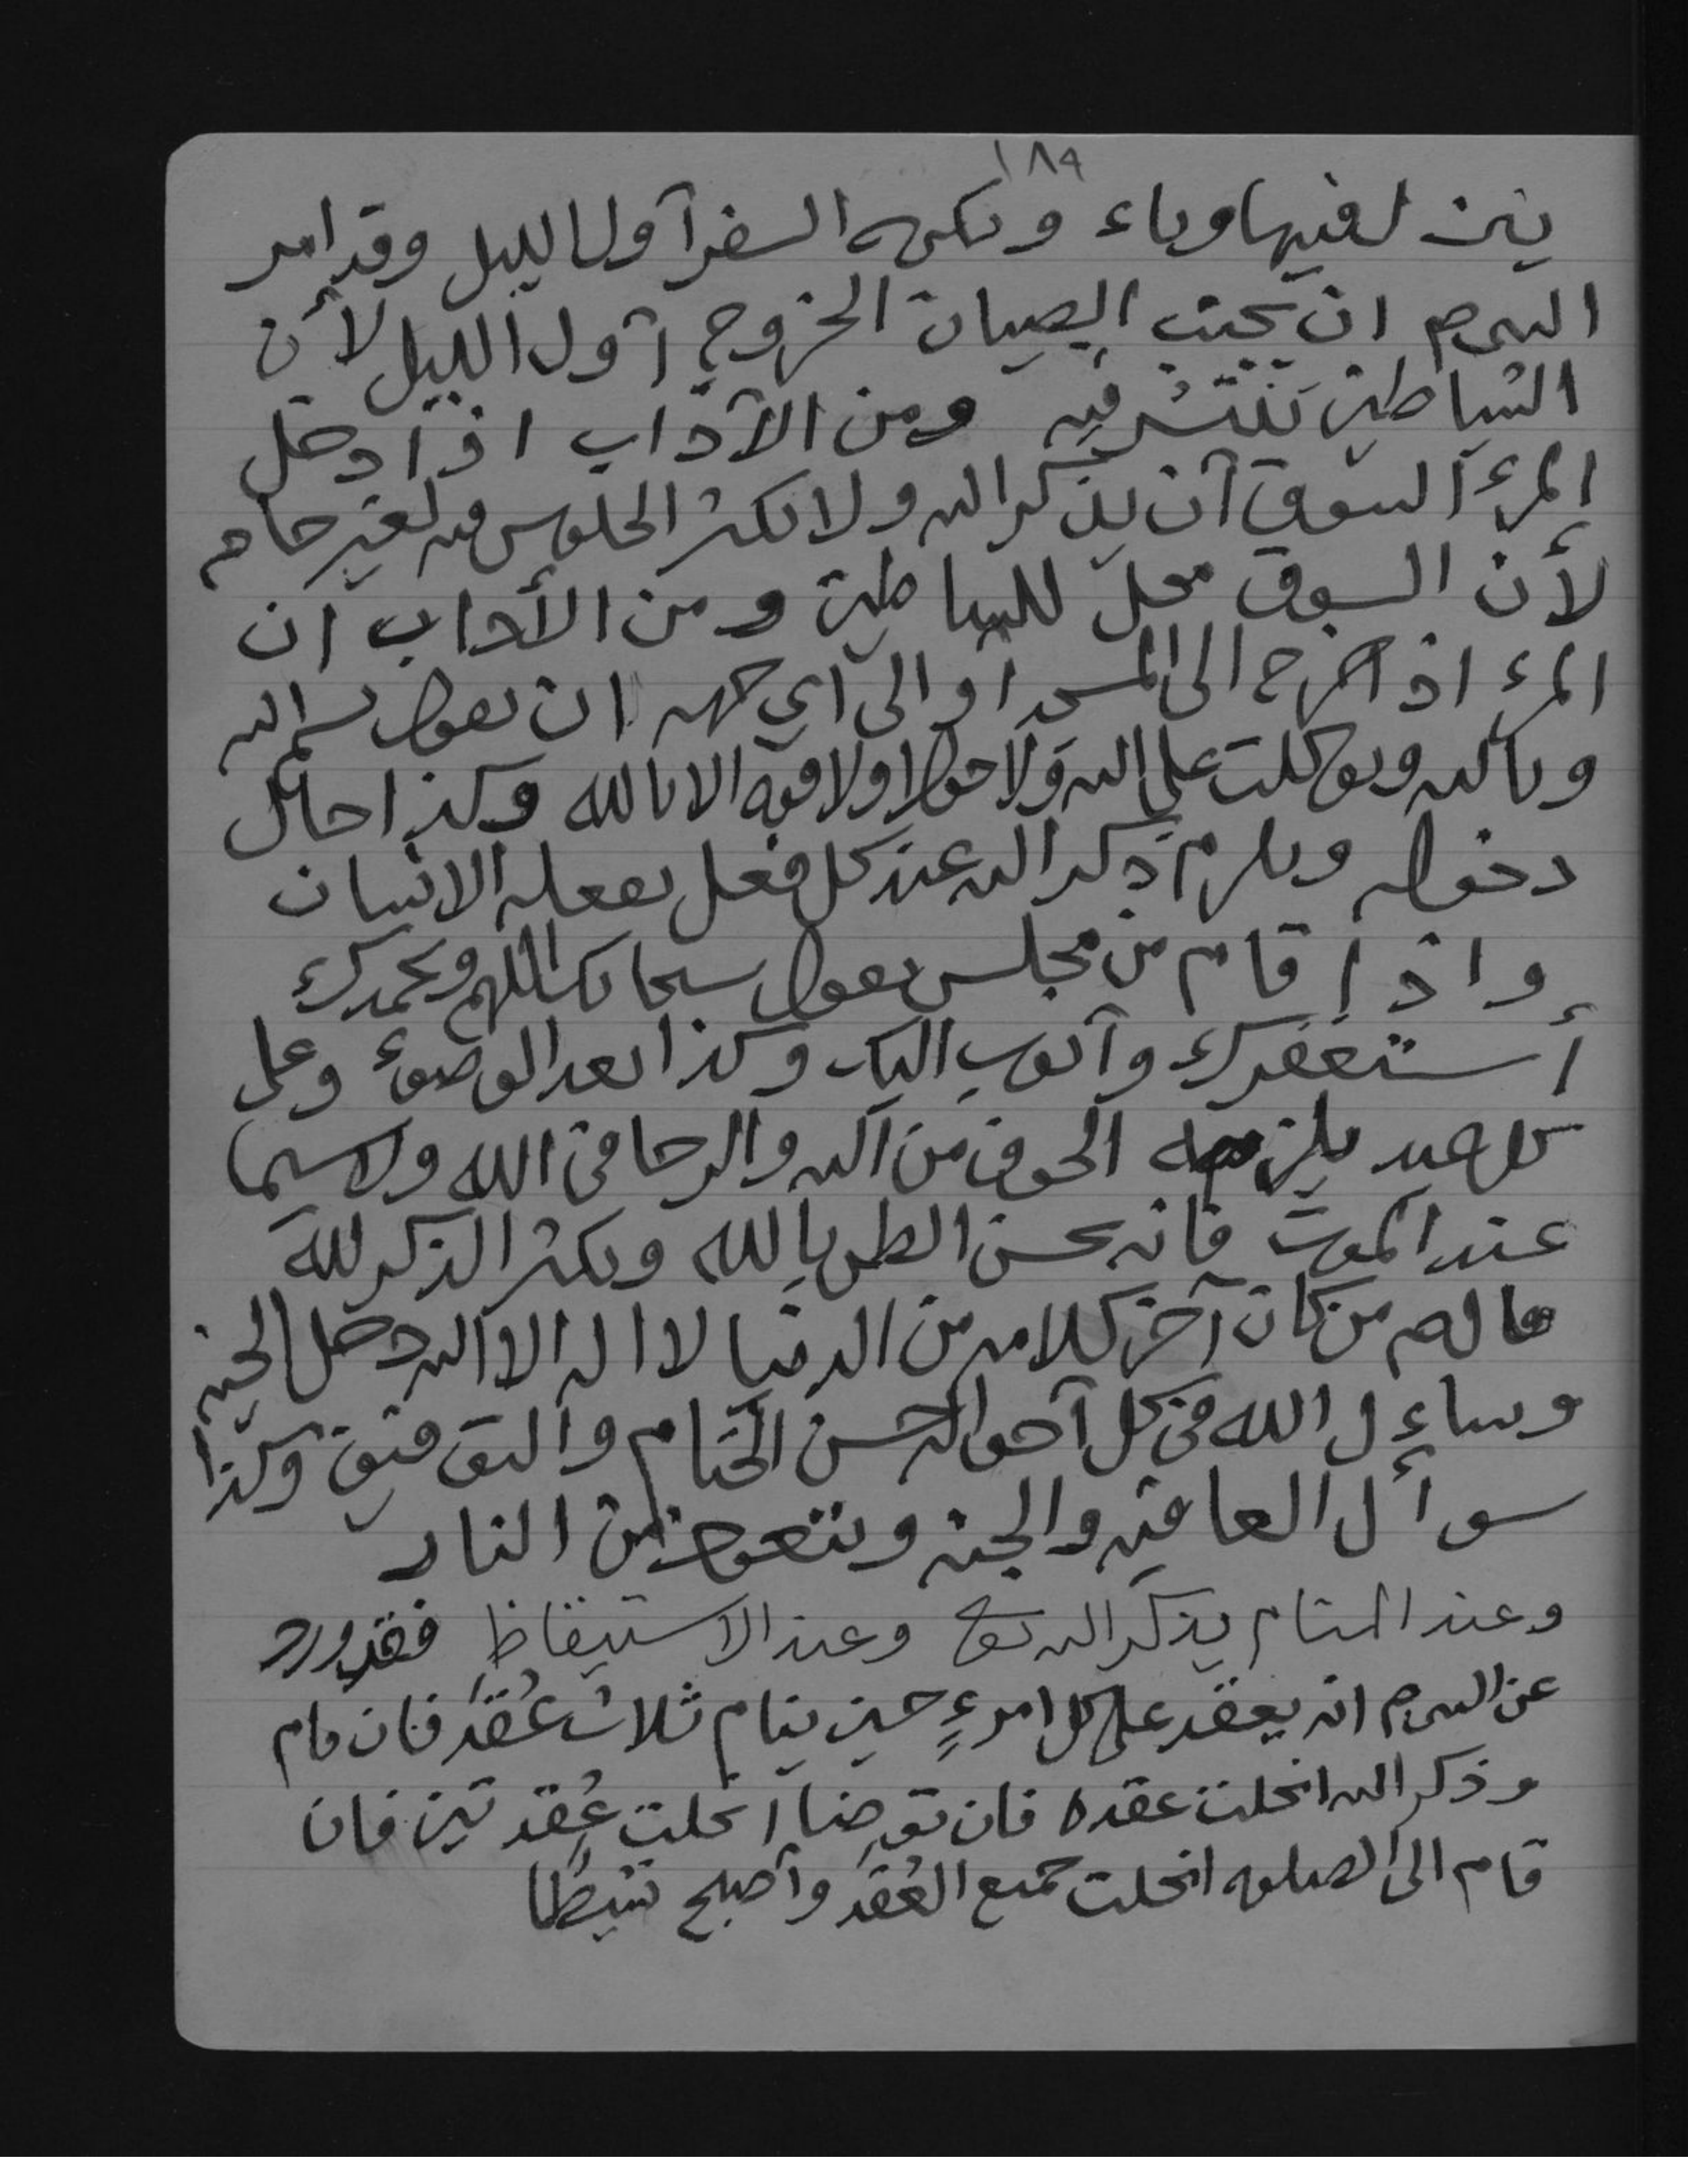 ١٨٩
ينزل فيها وباء ويكره السفر أول الليل وقد امر
النبي ص ان يجنب الصبيان الخروج أول الليل لأن
الشياطين تنتشر فيه ومن الآداب اذا دخل
المرء السوق أن يذكر الله ولا يكثر الجلوس فيه لغير حاجه
لأن السوق محل للشياطين ومن الأداب ان
المرء اذا خرج الى المسجد او الى اي جهه ان يقول بسم الله
وبالله وتوكلت على الله ولا حول ولا قوه الا بالله وكذا حال
دخوله ويلزم ذكر الله عند كل فعل يفعله الانسان
واذا قام من مجلس يقول سبحانك اللهم وبحمدك
أستغفرك وأتوب اليك وكذا بعد الوضوء وعلى
كل عبد يلزمه الخوف من الله والرجا في الله ولاسيما
عند الموت فانه يحسن الظن بالله ويكثر الذكر لله
قال ص من كان آخر كلامه من الدنيا لا اله الا الله دخل الجنه
وساءل الله في كل أحواله حسن الختام والتوفيق وكذا
سوأل العافيه والجنه ويتعوذ من النار
وعند المنام يذكر الله تع وعند الاستيقاظ فقد ورد
عن النبي ص انه يعقد على كل امرءٍ حين ينام ثلاث عُقَد فان قام
وذكر الله انحلت عقده فان توضا انحلت عُقدتين فان
قام الى الصلوه انحلت جميع العُقَد وأصبح نشيطًا